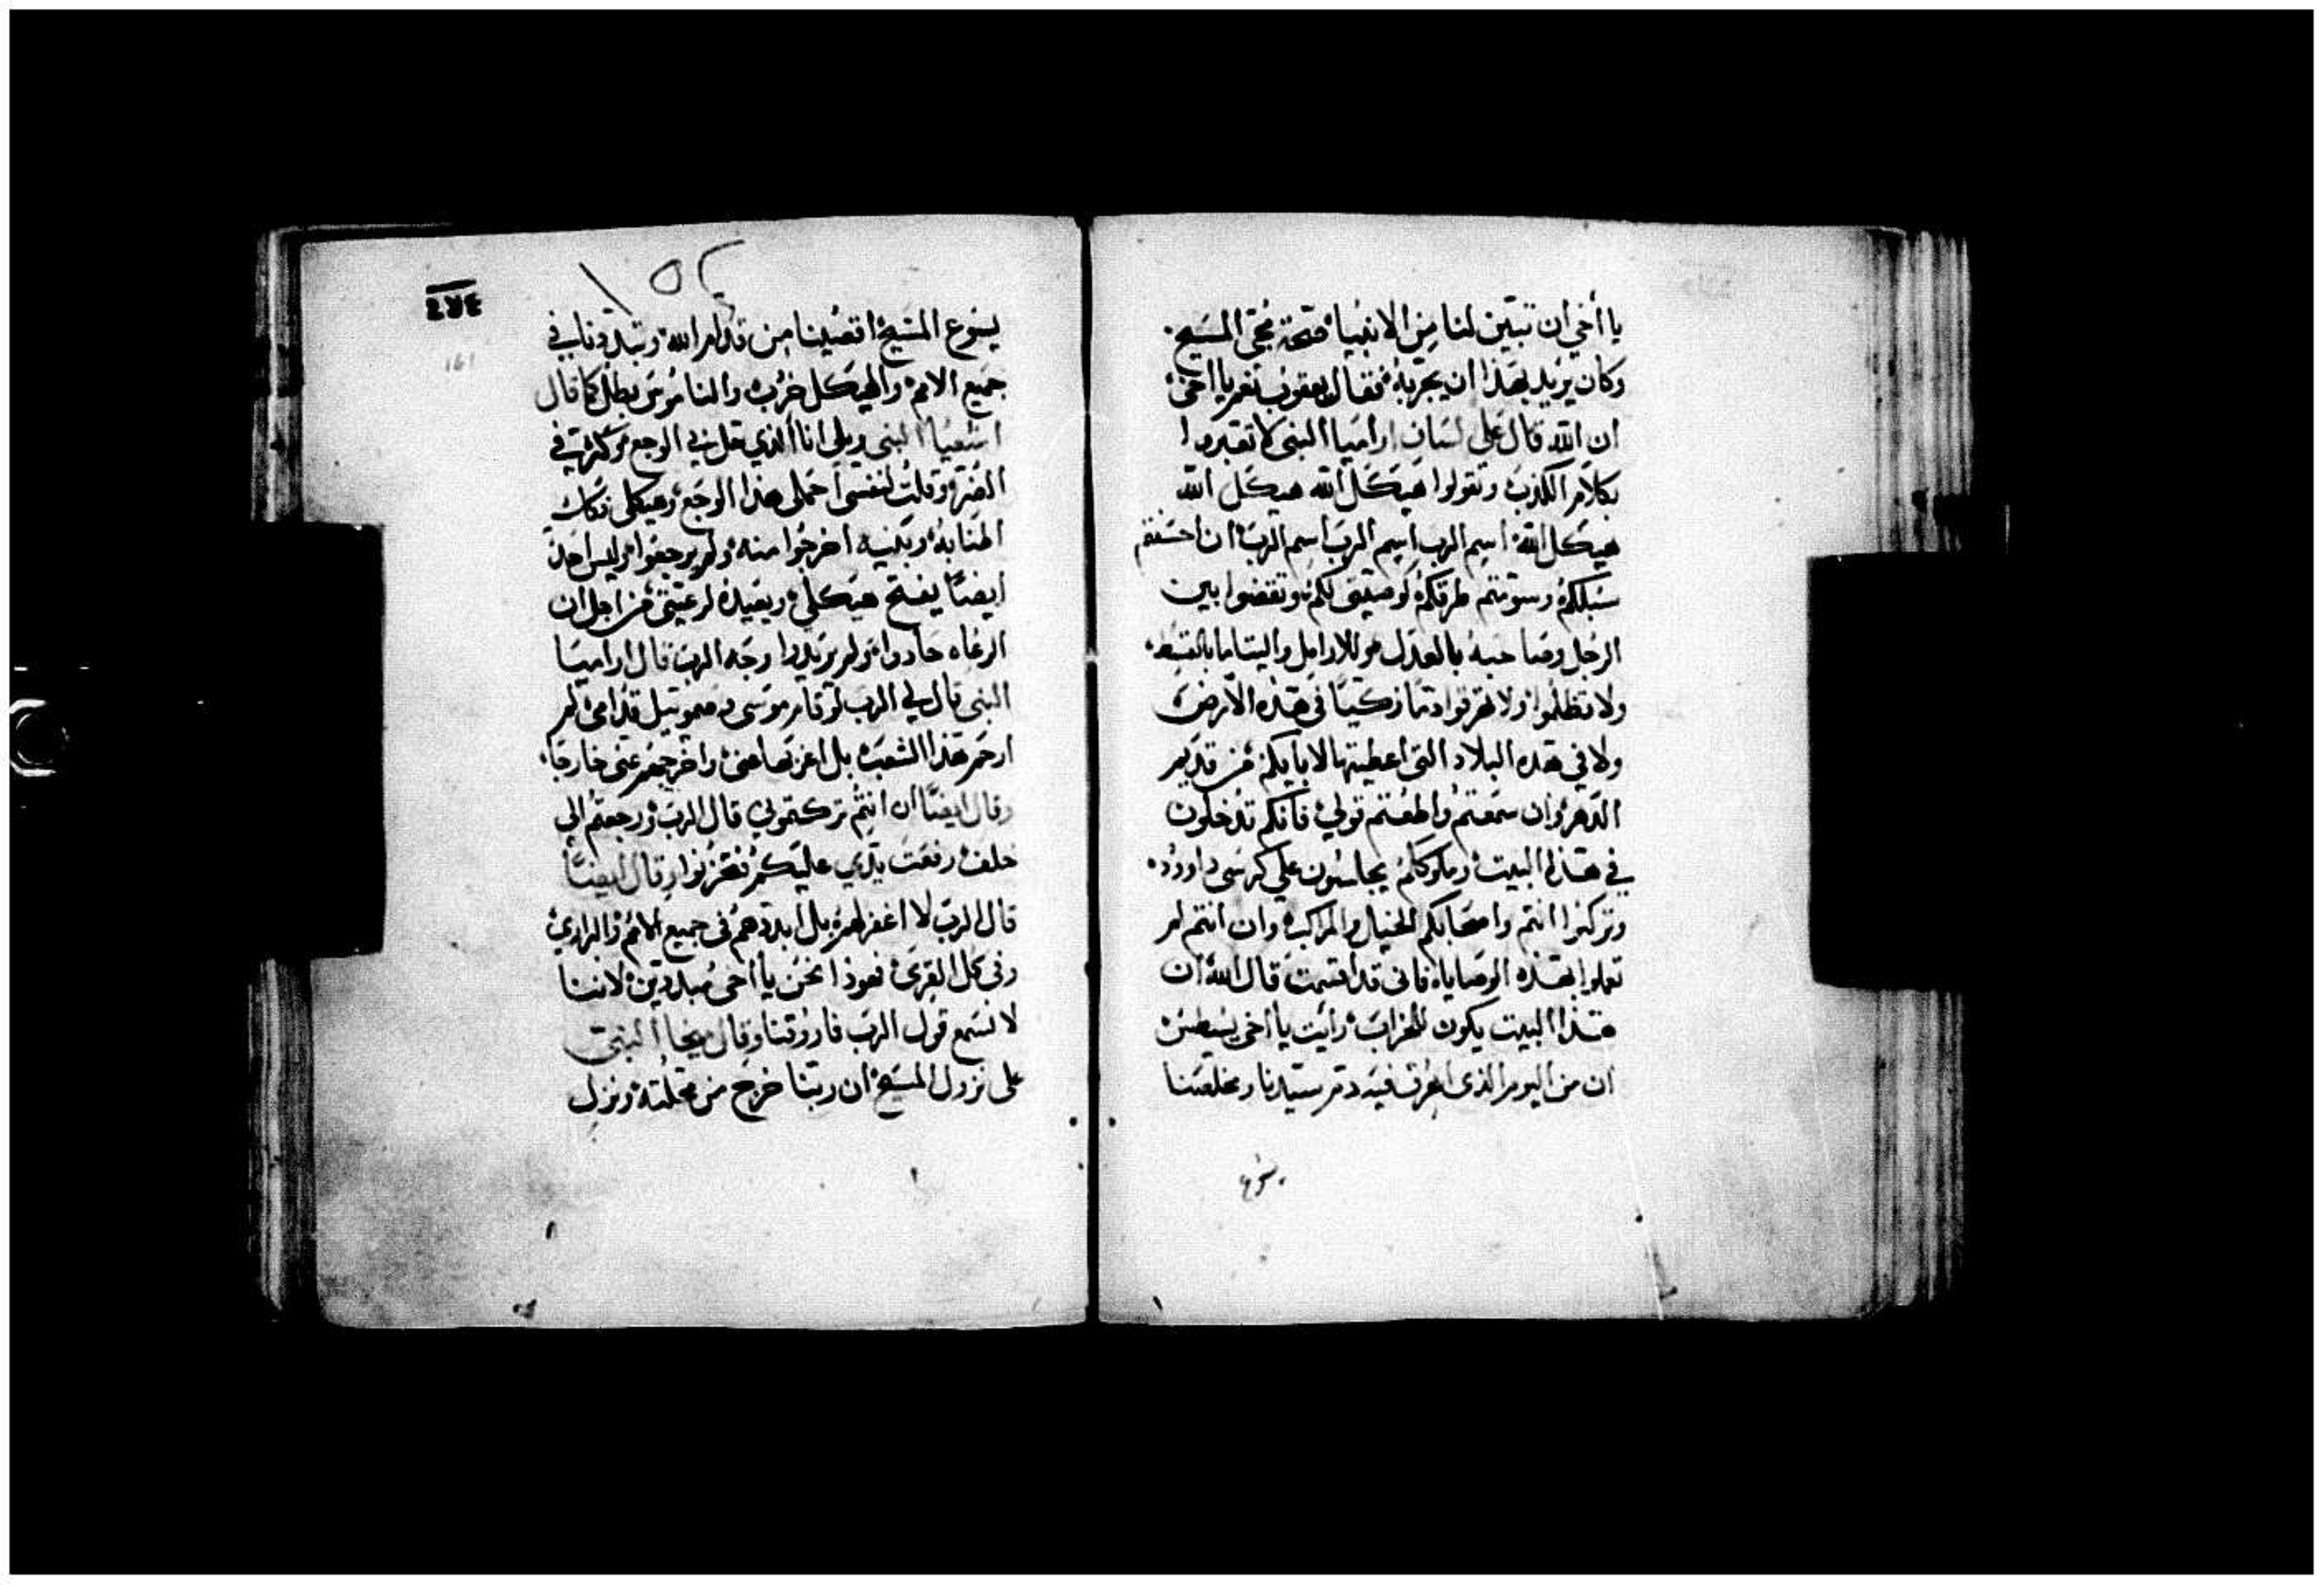 يا أخي ان تبين لنا من الانبيا صحة مجى المسيح
وكان يريد بهذا ان يجربه فقال يعقوب نعم يا اخى
ان الله قال على لسان اراميا النبى لا تعتدوا
بكلام الكذب وتقولوا هيكل الله هيكل الله
هيكل الله اسم الرب اسم الرب اسم الرب ان احسنتم
سبلكم وسويتم طرقكم وتقضوا بين
الرجل وصاحبه بالعدل وللارامل واليتاما بالقسط
ولا تظلموا ولا تهرقوا دما زكيا في هذه الارض
ولا في هذه البلاد التى اعطيتها لابايكم من قديم
الدهر وان سمعتم واطعتم قولي فانكم تدخلون
في هذا البيت وملوككم يجلسون علي كرسى داوود
وتركبوا انتم واصحابكم الخيل والمراكب وان انتم لم
تعملوا بهذه الوصايا فانى قد اقسمت قال الله ان
هذا البيت يكون للخراب رايت يا اخى يسطس
ان من اليوم الذى اهرق فيه دم سيدنا ومخلصنا
يسوع
١٥٢
يسوع المسيح اقصينا من قدام الله وتبددنا في
جميع الامم والهيكل خرب والناموس بطل كما قال
اشعيا النبى ويلى انا الذي حل بي الوجع وكثرت في
الضربة وقلت لنفسى احملى هذا الوجع وهيكلى
وبنيه اخرجوا منه ولم يرجعوا وليس احد
ايضا يفتح هيكلي ويعيده لرعيتى من اجل ان
الرعاه حادوا ولم يريدوا وجه الرب قال اراميا
النبى قال لي الرب لو قام موسى وصموييل قدامى لم
ارحم هذا الشعب بل اخرجهم عنى خارجا
وقال ايضا ان انتم تركتموني قال الرب ورجعتم الي
خلف رفعت يدي عليكم وقال ايضا
قال الرب لا اغفر لهم بل ابددهم في جميع الامم والبراري
وفى كل القرى نحن يا اخى مبددين لاننا
لا نسمع قول الرب وقال ميخا النبى
على نزول المسيح ان ربنا خرج من محلته ونزل